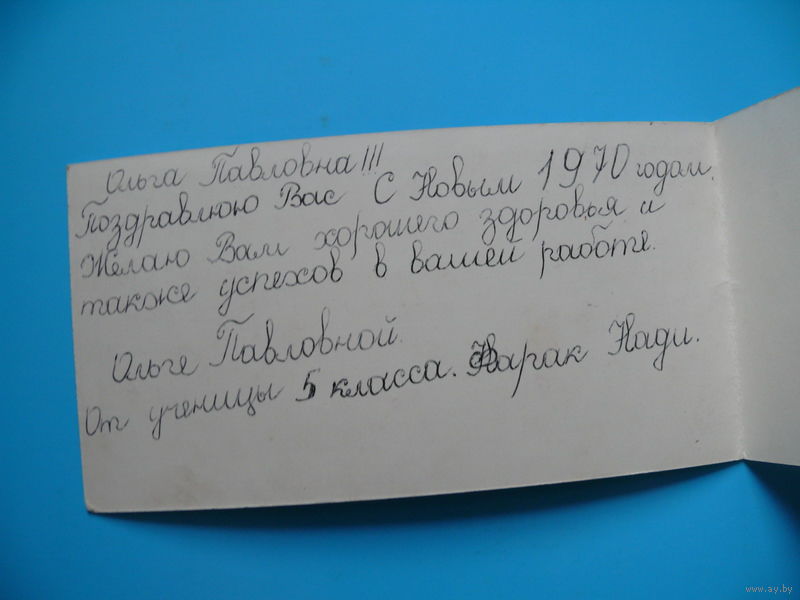 Ольга Павловна!!!
Поздравляю Вас С Новым 1970 годом.
Желаю Вам хорошего здоровья и
также успехов в вашей работе.
Ольге Павловной.
От ученицы 5 класса. Нади.
www.ay.by